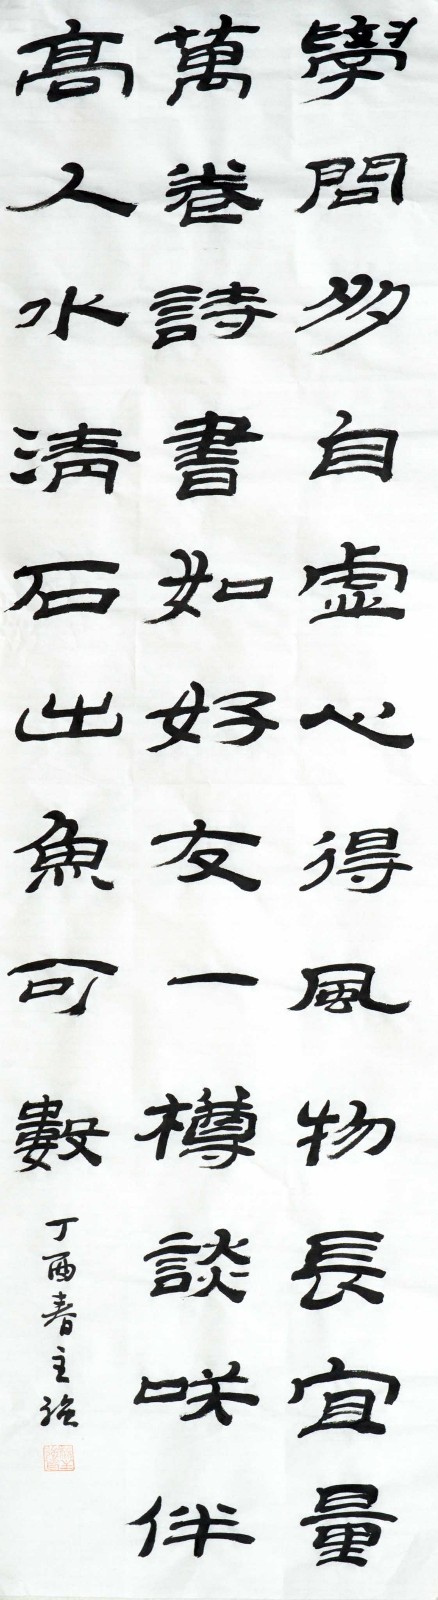 學問多自虛心得風物長宜量
萬卷詩書如好友一樽談咲伴
高人水清石出魚可數
丁酉春主強